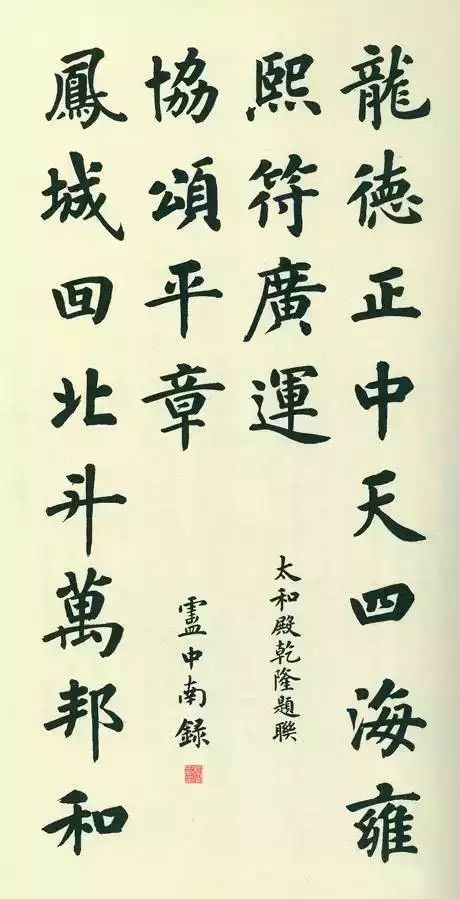 龍德正中天四海雍
熙符廣運
鳳城回北斗萬邦和
協頌平章
太和殿乾隆題聯
盧中南録